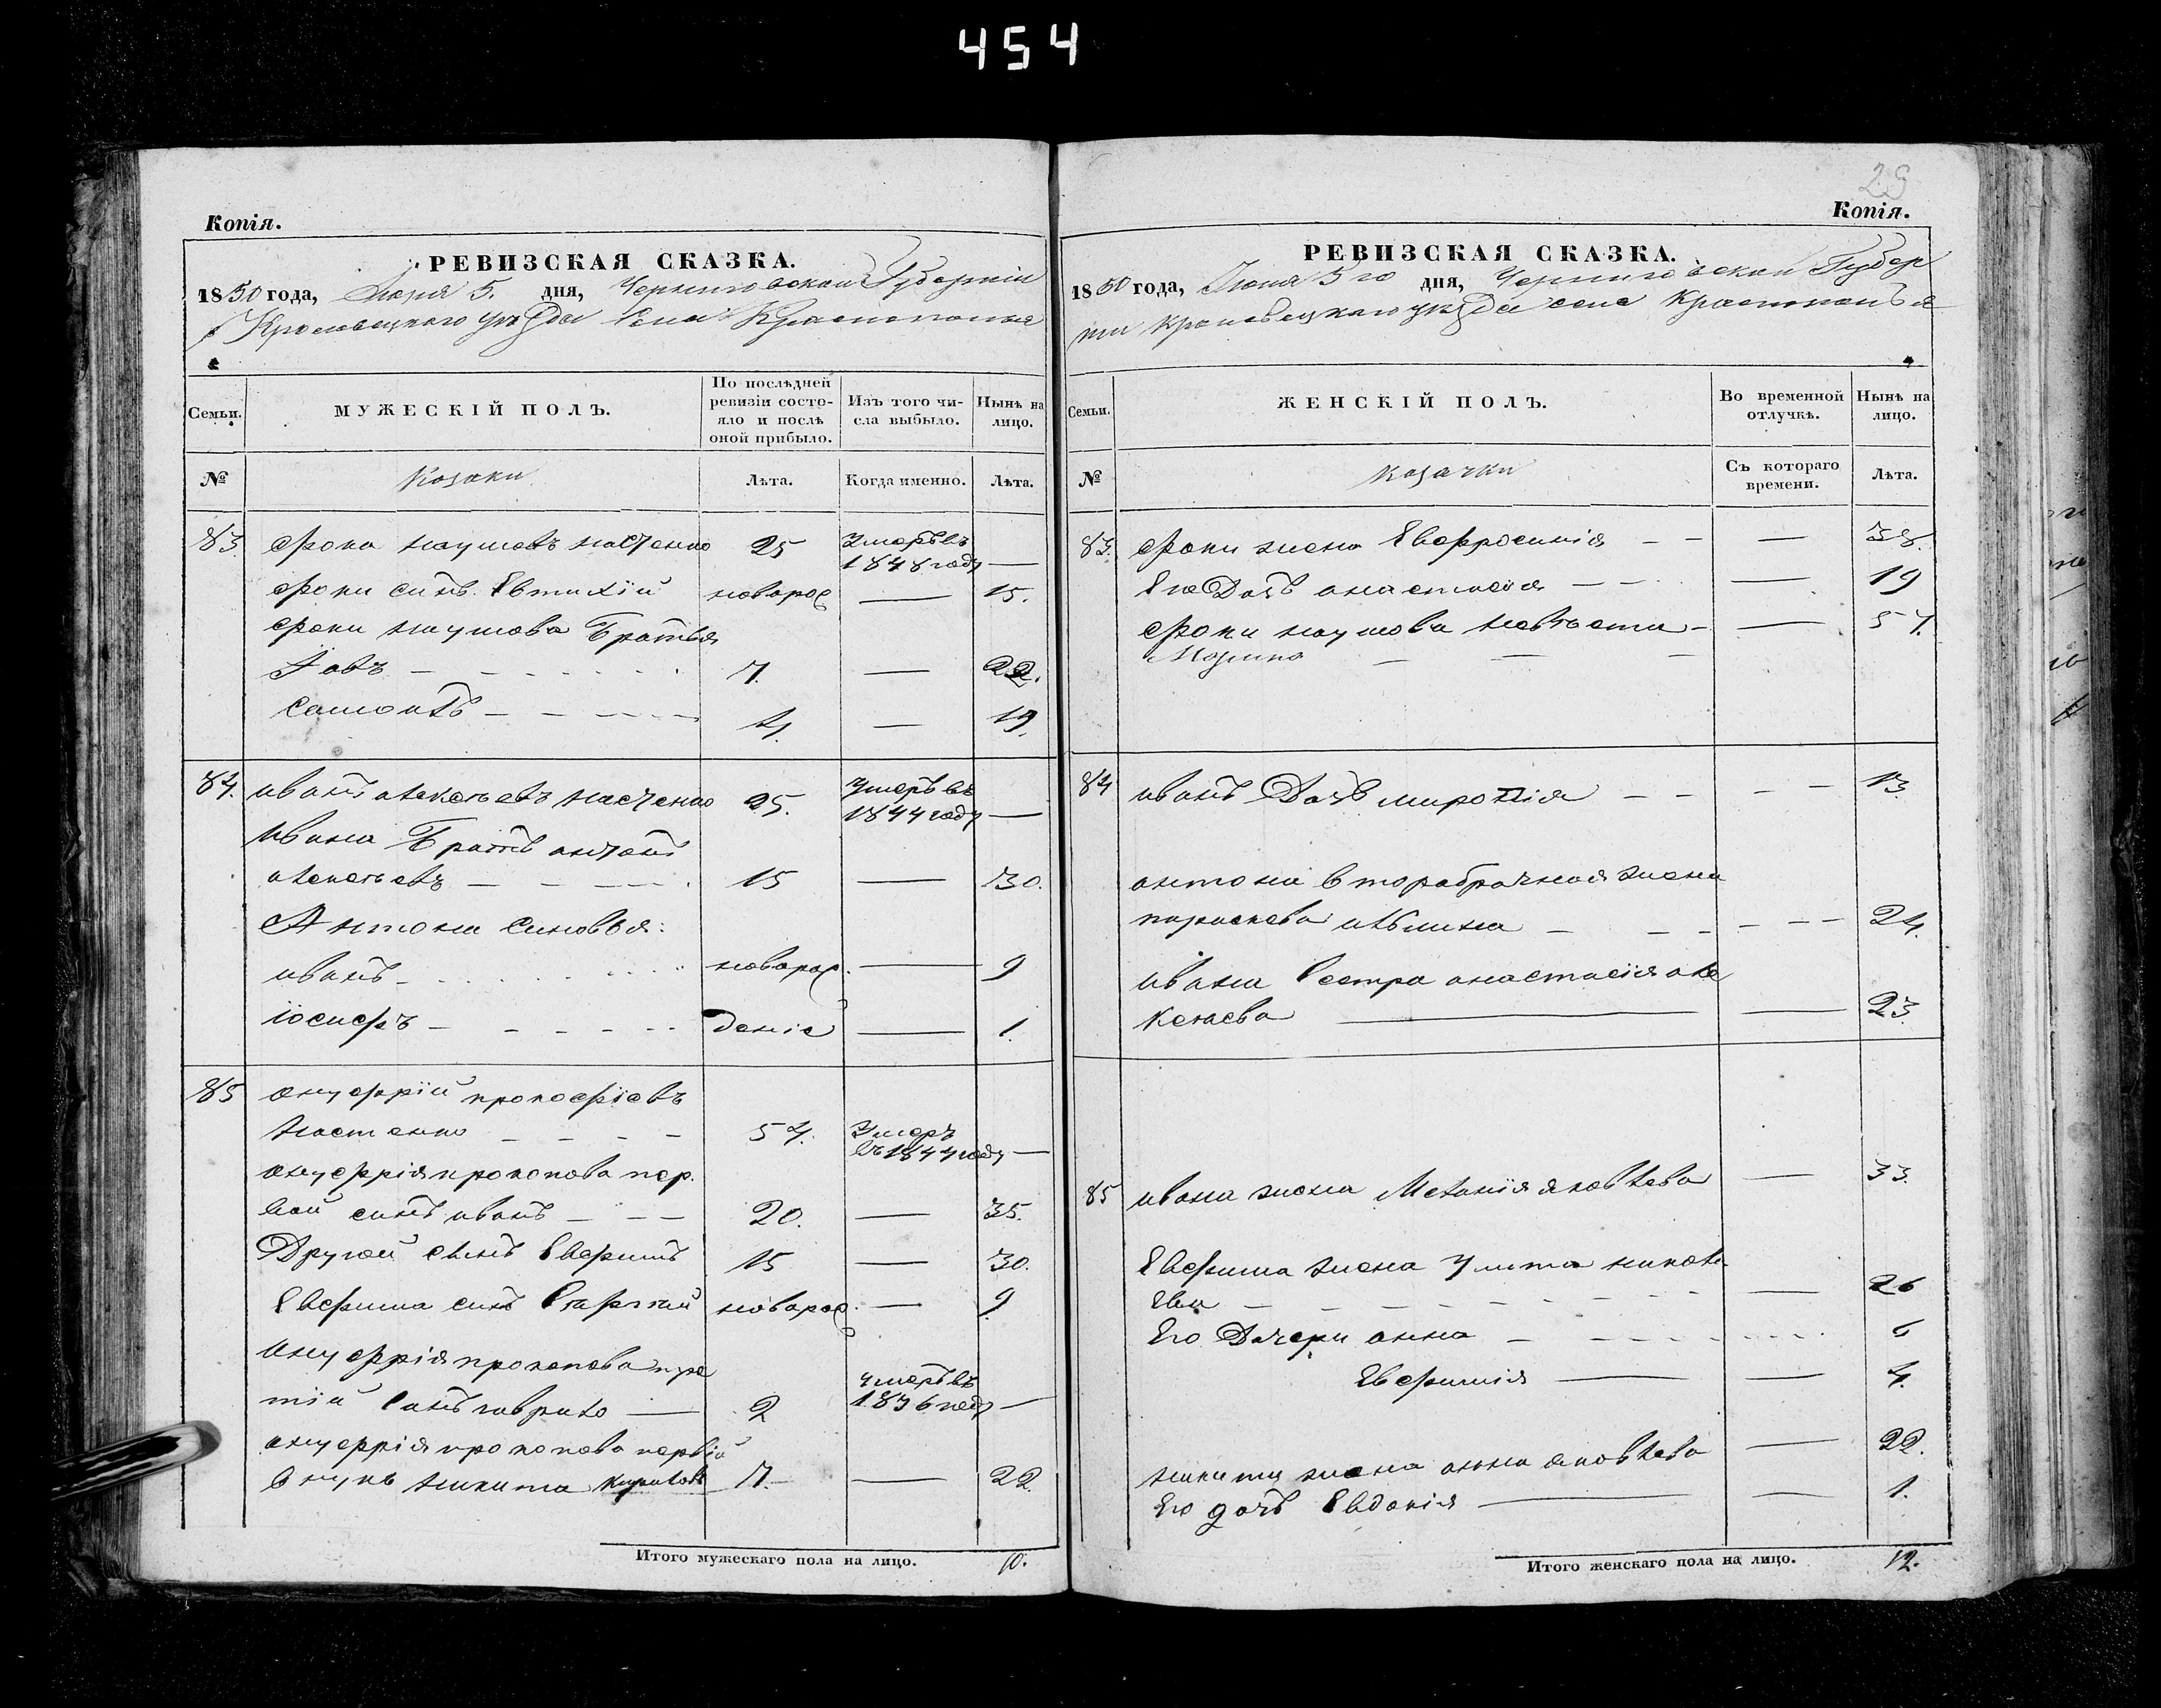 454
Копія.
РЕВИЗСКАЯ СКАЗКА.
1850 года, Июня 5. дня, Черниговской Губерніи
Кролевецкого уѣзда Села Краснополья
Семьи.
МУЖЕСКІЙ ПОЛЪ.
По послѣдней ревизіи состояло и послѣ оной прибыло.
Изъ того числа выбыло.
Нынѣ на лицо.
№
Козаки
Лѣта.
Когда именно.
Лѣта.
83. Фока наумовъ насченко 25 Умеръ въ
1848 году —
Фоки синъ Евтихій новорож — 15.
Фоки наумова Братья
Іовъ 7. — 22.
Самоилъ 4. — 19.
84. иванъ алексѣевъ насченко 25. Умеръ въ
1844 году —
Ивана Братъ антонъ
алексѣевъ 15 — 30.
Антона Синовья:
иванъ новорож. — 9
іосифъ деніе — 1.
85 онуфрій прокофіевъ
настенко 54. Умеръ
въ 1844 году —
онуфрія прокопова пер.
вой синъ иванъ 20. — 35.
Другой синъ Евфимъ 15 — 30.
Евфима синъ новорож. — 9.
Онуфрія прокопова тре
тій Синъ гаврило — 2 умеръ въ
1836 году —
онуфрія прокопова первій
внукъ никита кириловъ 7. — 22.
Итого мужескаго пола на лицо. 10.
29
Копія.
РЕВИЗСКАЯ СКАЗКА.
1850 года, Июня 5го дня, Черниговской Губер
ніи кролевецкаго уѣзда села краснополья
Семьи.
ЖЕНСКІЙ ПОЛЪ.
Во временной отлучкѣ.
Нынѣ на лицо.
№
Козачки
Съ котораго времени.
Лѣта.
83. Фоки жена Евфросинія — 38.
Его Дочъ анастасія — 19
Фоки наумова невѣстка — 57.
Марина
84 иванъ Дочъ 13.
антона второбрачная жена
параскева 24.
ивана Сестра анастасія але
ксѣева — 23.
85 ивана жена Меланія яковлева — 33.
Евфима жена Улита
ева — 26
Его Дочери анна 6
Евфимія — 4.
никиты жена анна яковлева — 22.
Его дочъ Евдокія — 1.
Итого женскаго пола на лицо. 12.